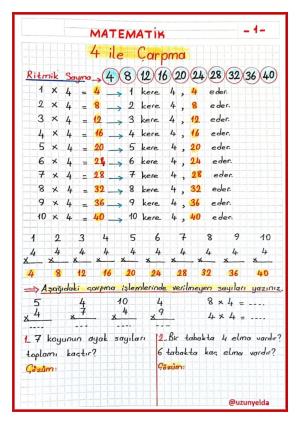 MATEMATİK -1-
4 ile Çarpma
Ritmik Sayma → 4 8 12 16 20 24 28 32 36 40
1 x 4 = 4 → 1 kere 4 , 4 eder.
2 x 4 = 8 → 2 kere 4 , 8 eder.
3 x 4 = 12 → 3 kere 4 , 12 eder.
4 x 4 = 16 → 4 kere 4 , 16 eder.
5 x 4 = 20 → 5 kere 4 , 20 eder.
6 x 4 = 24 → 6 kere 4 , 24 eder.
7 x 4 = 28 → 7 kere 4 , 28 eder.
8 x 4 = 32 → 8 kere 4 , 32 eder.
9 x 4 = 36 → 9 kere 4 , 36 eder.
10 x 4 = 40 → 10 kere 4 , 40 eder.
1 2 3 4 5 6 7 8 9 10
x 4 x 4 x 4 x 4 x 4 x 4 x 4 x 4 x 4 x 4
4 8 12 16 20 24 28 32 36 40
⇒ Aşağıdaki çarpma işlemlerinde verilmeyen sayıları yazınız.
5 4 10 4 8 x 4 = ....
x 4 x 7 x 4 x 9 9 x 4 = ....
.... .... .... ....
1. 7 koyunun ayak sayıları 2. Bir tabakta 4 elma vardır?
toplamı kaçtır? 6 tabakta kaç elma vardır?
Çözüm: Çözüm:
@uzunyelda